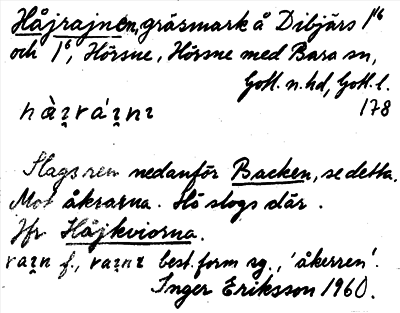 Håjrajnen, gräsmark å Dibjärs 1⁴⁶
och 1⁶, Hörsne, Hörsne med Bara sn,
Gotl. n. hd, Gotl. l.
178
Slags ren nedanför Backen, se detta.
Mot åkrarna. Hö slogs där.
Jfr Håjkviorna.
best. form sg., 'åkerren'.
Inger Eriksson 1960.